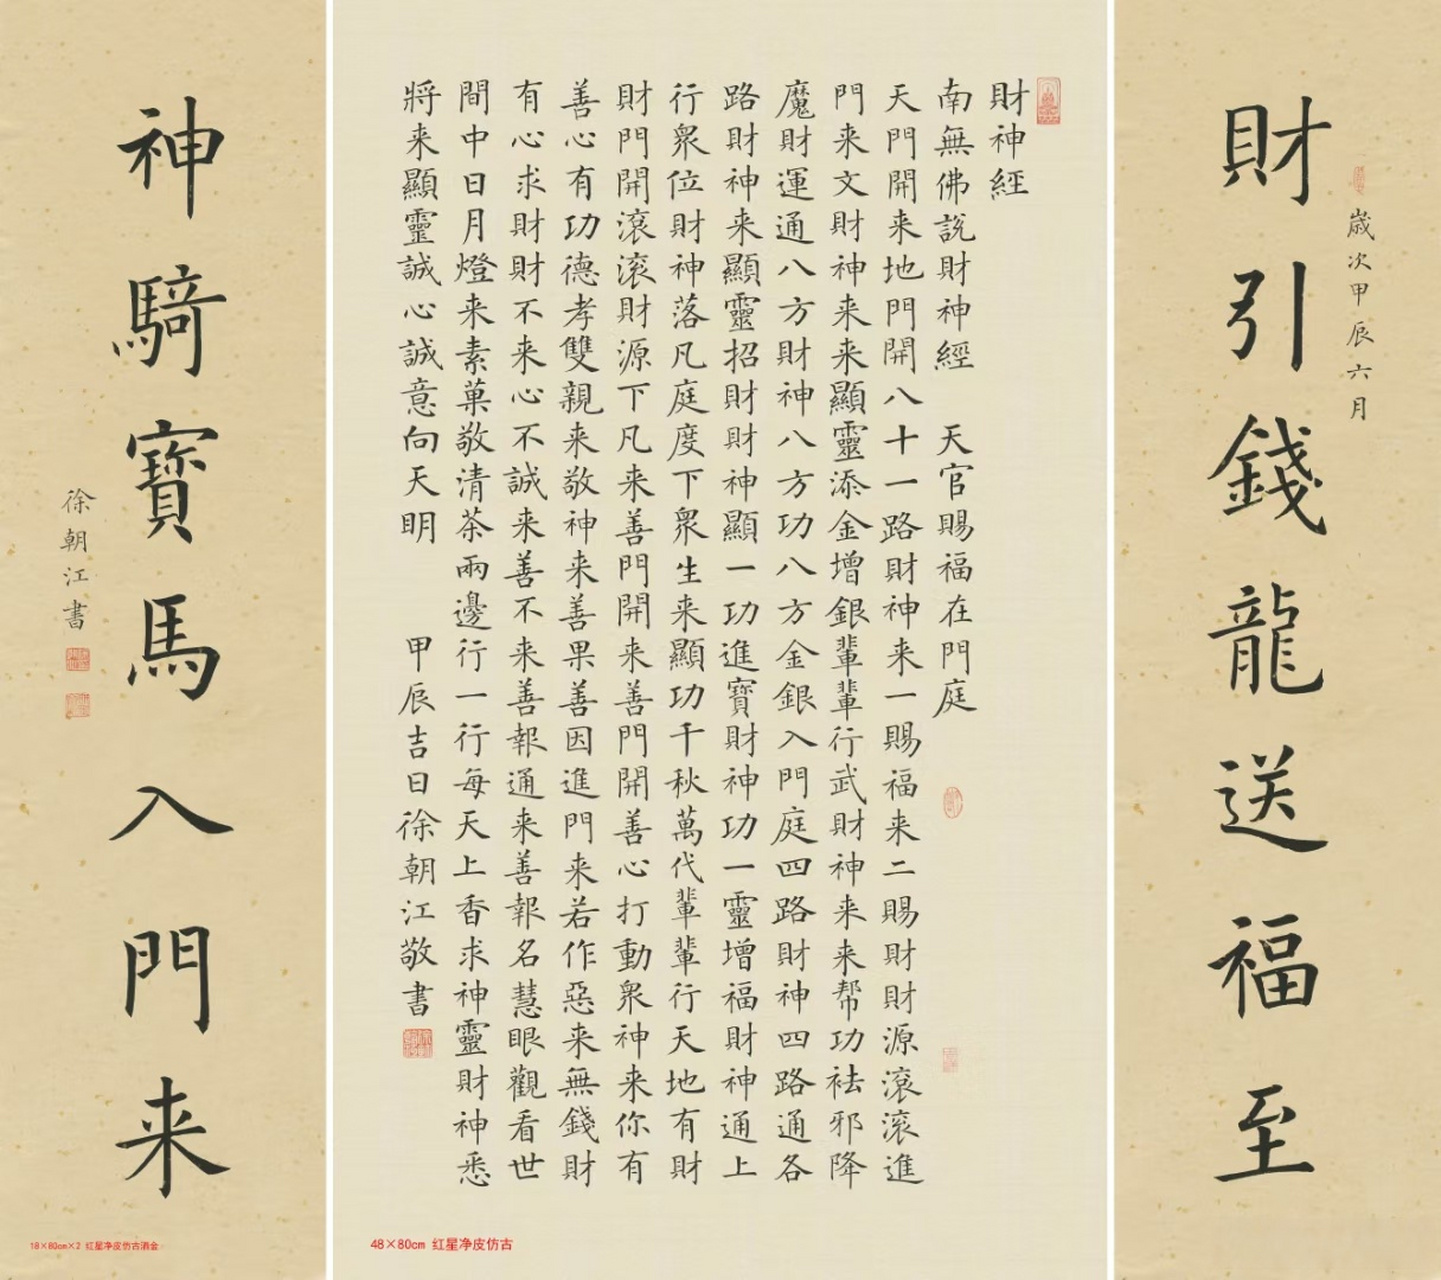 歲次甲辰六月
財引錢龍送福至
財神經
南無佛說財神經　天官賜福在門庭
天門開来地門開八十一路財神来一賜福来二賜財財源滾滾進
門来文財神来来顯靈添金增銀輩輩行武財神来来帮功祛邪降
魔財運通八方財神八方功八方金銀入門庭四路財神四路通各
路財神来顯靈招財財神顯一功進寶財神功一靈增福財神通上
行衆位財神落凡庭度下衆生来顯功千秋萬代輩輩行天地有財
財門開滾滾財源下凡来善門開来善門開善心打動衆神来你有
善心有功德孝雙親来敬神来善果善因進門来若作惡来無錢財
有心求財財不来心不誠来善不来善報通来善報名慧眼觀看世
間中日月燈来素菓敬清茶兩邊行一行每天上香求神靈財神悉
將来顯靈誠心誠意向天明　　甲辰吉日徐朝江敬書
神騎寶馬入門来
徐朝江書
48×80cm 红星净皮仿古
18×80cm×2 红星净皮仿古洒金